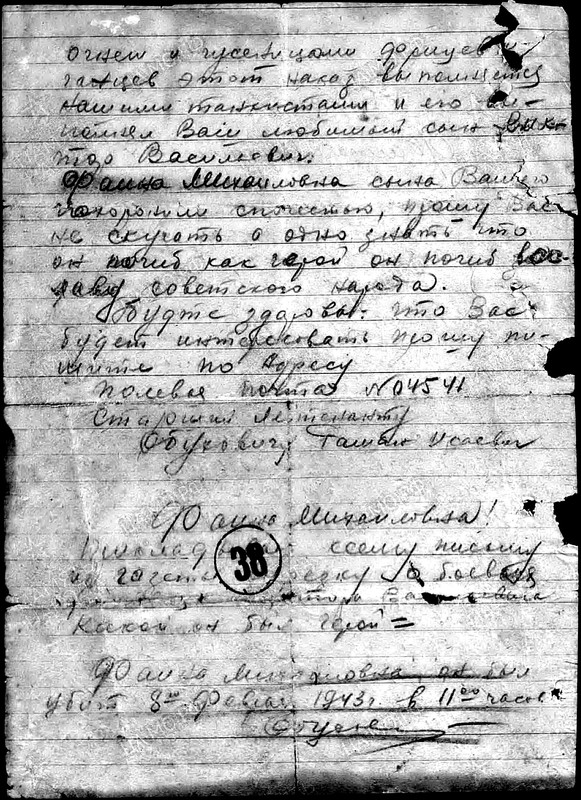 огнем и гусеницами фрицев и
ганцев этот наказ выполняется
нашими танкистами и его вы-
полнял Ваш любимый сын Вик-
тор Васильевич.
Фаина Михаиловна сына Вашего
похоронили с почестью, прошу Вас
не скучать а одно знать что
он погиб как герой он погиб во
славу советского народа.
Будте здаровы. что Вас
будет интересовать прошу пи-
шите по Адресу
Полевая почта N 04541
Старший Лейтенанту
Обухович, Исаевич
Фаина Михаиловна!
сему письму
из газеты о боевой
Какой он был Герой =
38
Фаина Михаиловна, он был
убит 8го Феврал 1943 г. в 11 00 часов